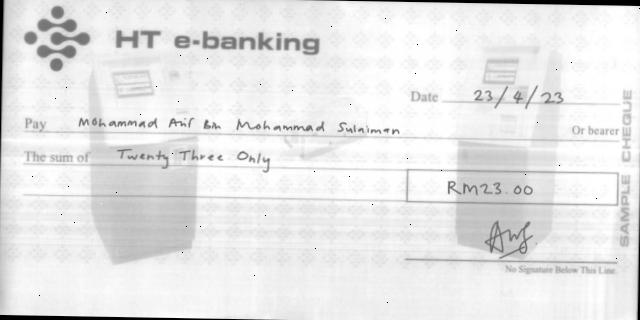 HT e-banking
Date 23/4/23
Pay Mohammad Arif Bin Mohammad Sulaiman Or bearer
The sum of Twenty Three Only
RM23.00
No Signature Below This Line
SAMPLE CHEQUE